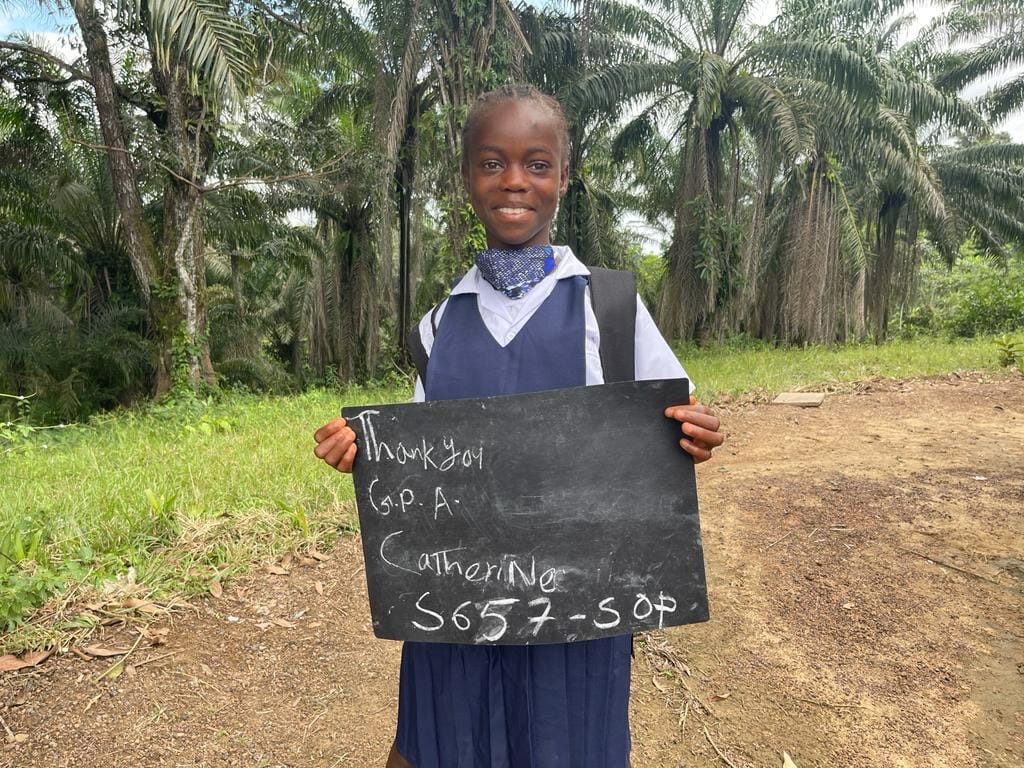 Thank you
G.P.A.
Catherine
S657-SOP